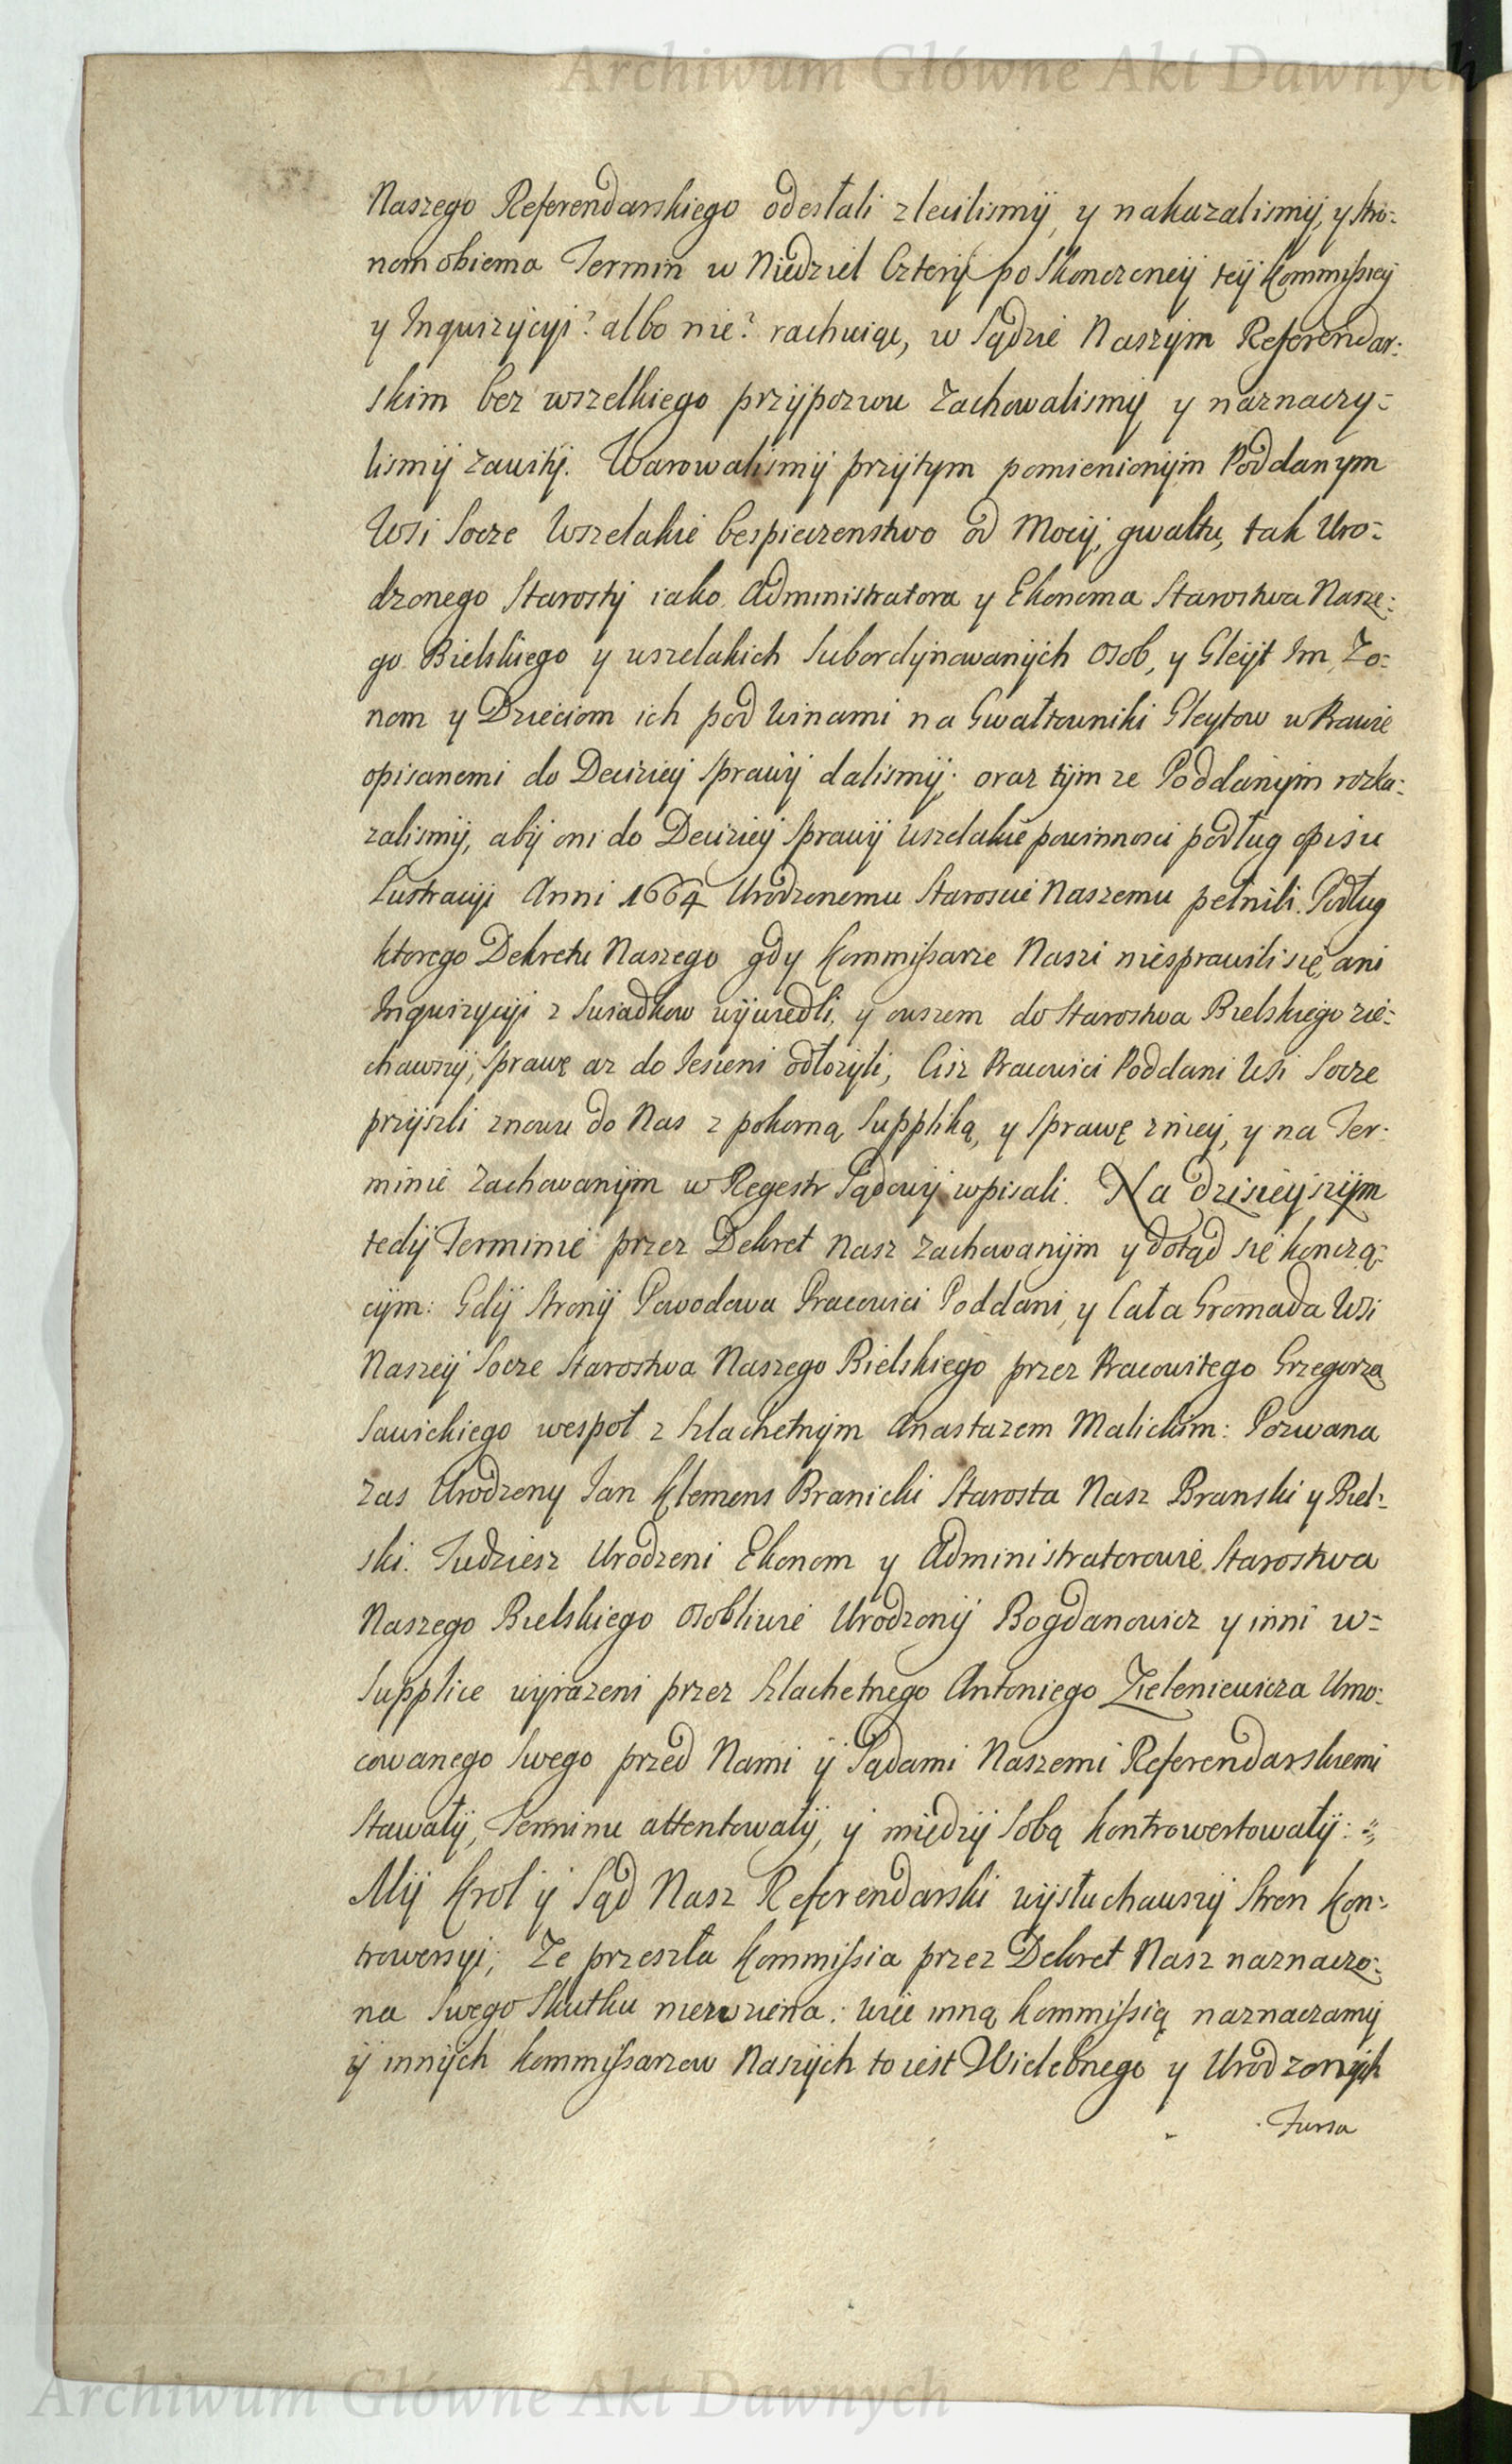 Archiwum Główne Akt Dawnych
Naszego Referendarskiego odesłali zlecilismÿ, y nakazalismÿ, y stro=
nom obiema Termin w Niedziel Czterÿ po skonczoneÿ teÿ Kommissieÿ
y Inquizÿcyi? albo nie? rachuiąc, w Sądzie Naszÿm Referendar=
skim bez wszelkiego przÿpozwu zachowalismÿ y naznaczy=
lismÿ zawitÿ. Warowalismÿ przÿtym pomienionÿm Poddanym
Wsi Socze Wszelakie bespieczenstwo od Mocÿ, gwałtu, tak Uro=
dzonego Starostÿ iako Administratora y Ekonoma Starostwa Nasze=
go Bielskiego y wszelakich Subordÿnowanÿch Osob, y Gleÿt Im, Zo=
nom y Dzieciom ich pod winami na Gwałtowniki Gleytow w Prawie
opisanemi do Decizieÿ Sprawÿ dalismÿ; oraz tÿm ze Poddanÿm rozka=
zalismÿ, abÿ oni do Decizieÿ Sprawÿ wszelakie powinnosci podług opisu
Lustracÿi Anni 1664 Urodzonemu Staroscie Naszemu pełnili. Podług
ktorego Dekretu Naszego gdy Kommissarze Naszi niesprawili się, ani
Inquizycÿi z Swiadkow wÿwiedli, y owszem do Starostwa Bielskiego zie=
chawszÿ, sprawę az do Iesieni odłozÿli, Cisz Pracowici Poddani Wsi Socze
przÿszli znowu do Nas z pokorną Suppliką, y Sprawę z nieÿ, y na Ter=
minie zachowanÿm w Regestr Sądowÿ wpisali. Na dzisieÿszÿm
tedÿ Terminie przez Dekret Nasz zachowanÿm y dotąd się konczą=
cÿm: Gdÿ Stronÿ Powodowa Pracowici Poddani, y Cała Gromada Wsi
Naszeÿ Socze Starostwa Naszego Bielskiego przez Pracowitego Grzegorza
Sawickiego wespoł z Szlachetnÿm Anastazem Malickim: Pozwana
zas Urodzony Ian Klemens Branicki Starosta Nasz Branski y Biel=
ski. Tudziesz Urodzeni Ekonom y Administratorowie Starostwa
Naszego Bielskiego osobliwie Urodzonÿ Bogdanowicz y inni w=
Supplice wÿrazeni przez Szlachetnego Antoniego Zieleniewicza Umo=
cowanego Swego przed Nami ÿ Sądami Naszemi Referendarskiemi
Stawałÿ, Terminu attentowałÿ, ÿ międzÿ Sobą kontrowertowałÿ:
Mÿ Krol ÿ Sąd Nasz Referendarski wÿsłuchawszÿ Stron Kon=
trowersyi; Ze przeszła Kommissia przez Dekret Nasz naznaczo=
na Swego Skutku niewzieła: więc inną Kommissią naznaczamÿ
ÿ innÿch Kommissarzow Naszÿch to iest Wielebnego y Urodzonÿch
Fursa
Archiwum Główne Akt Dawnych